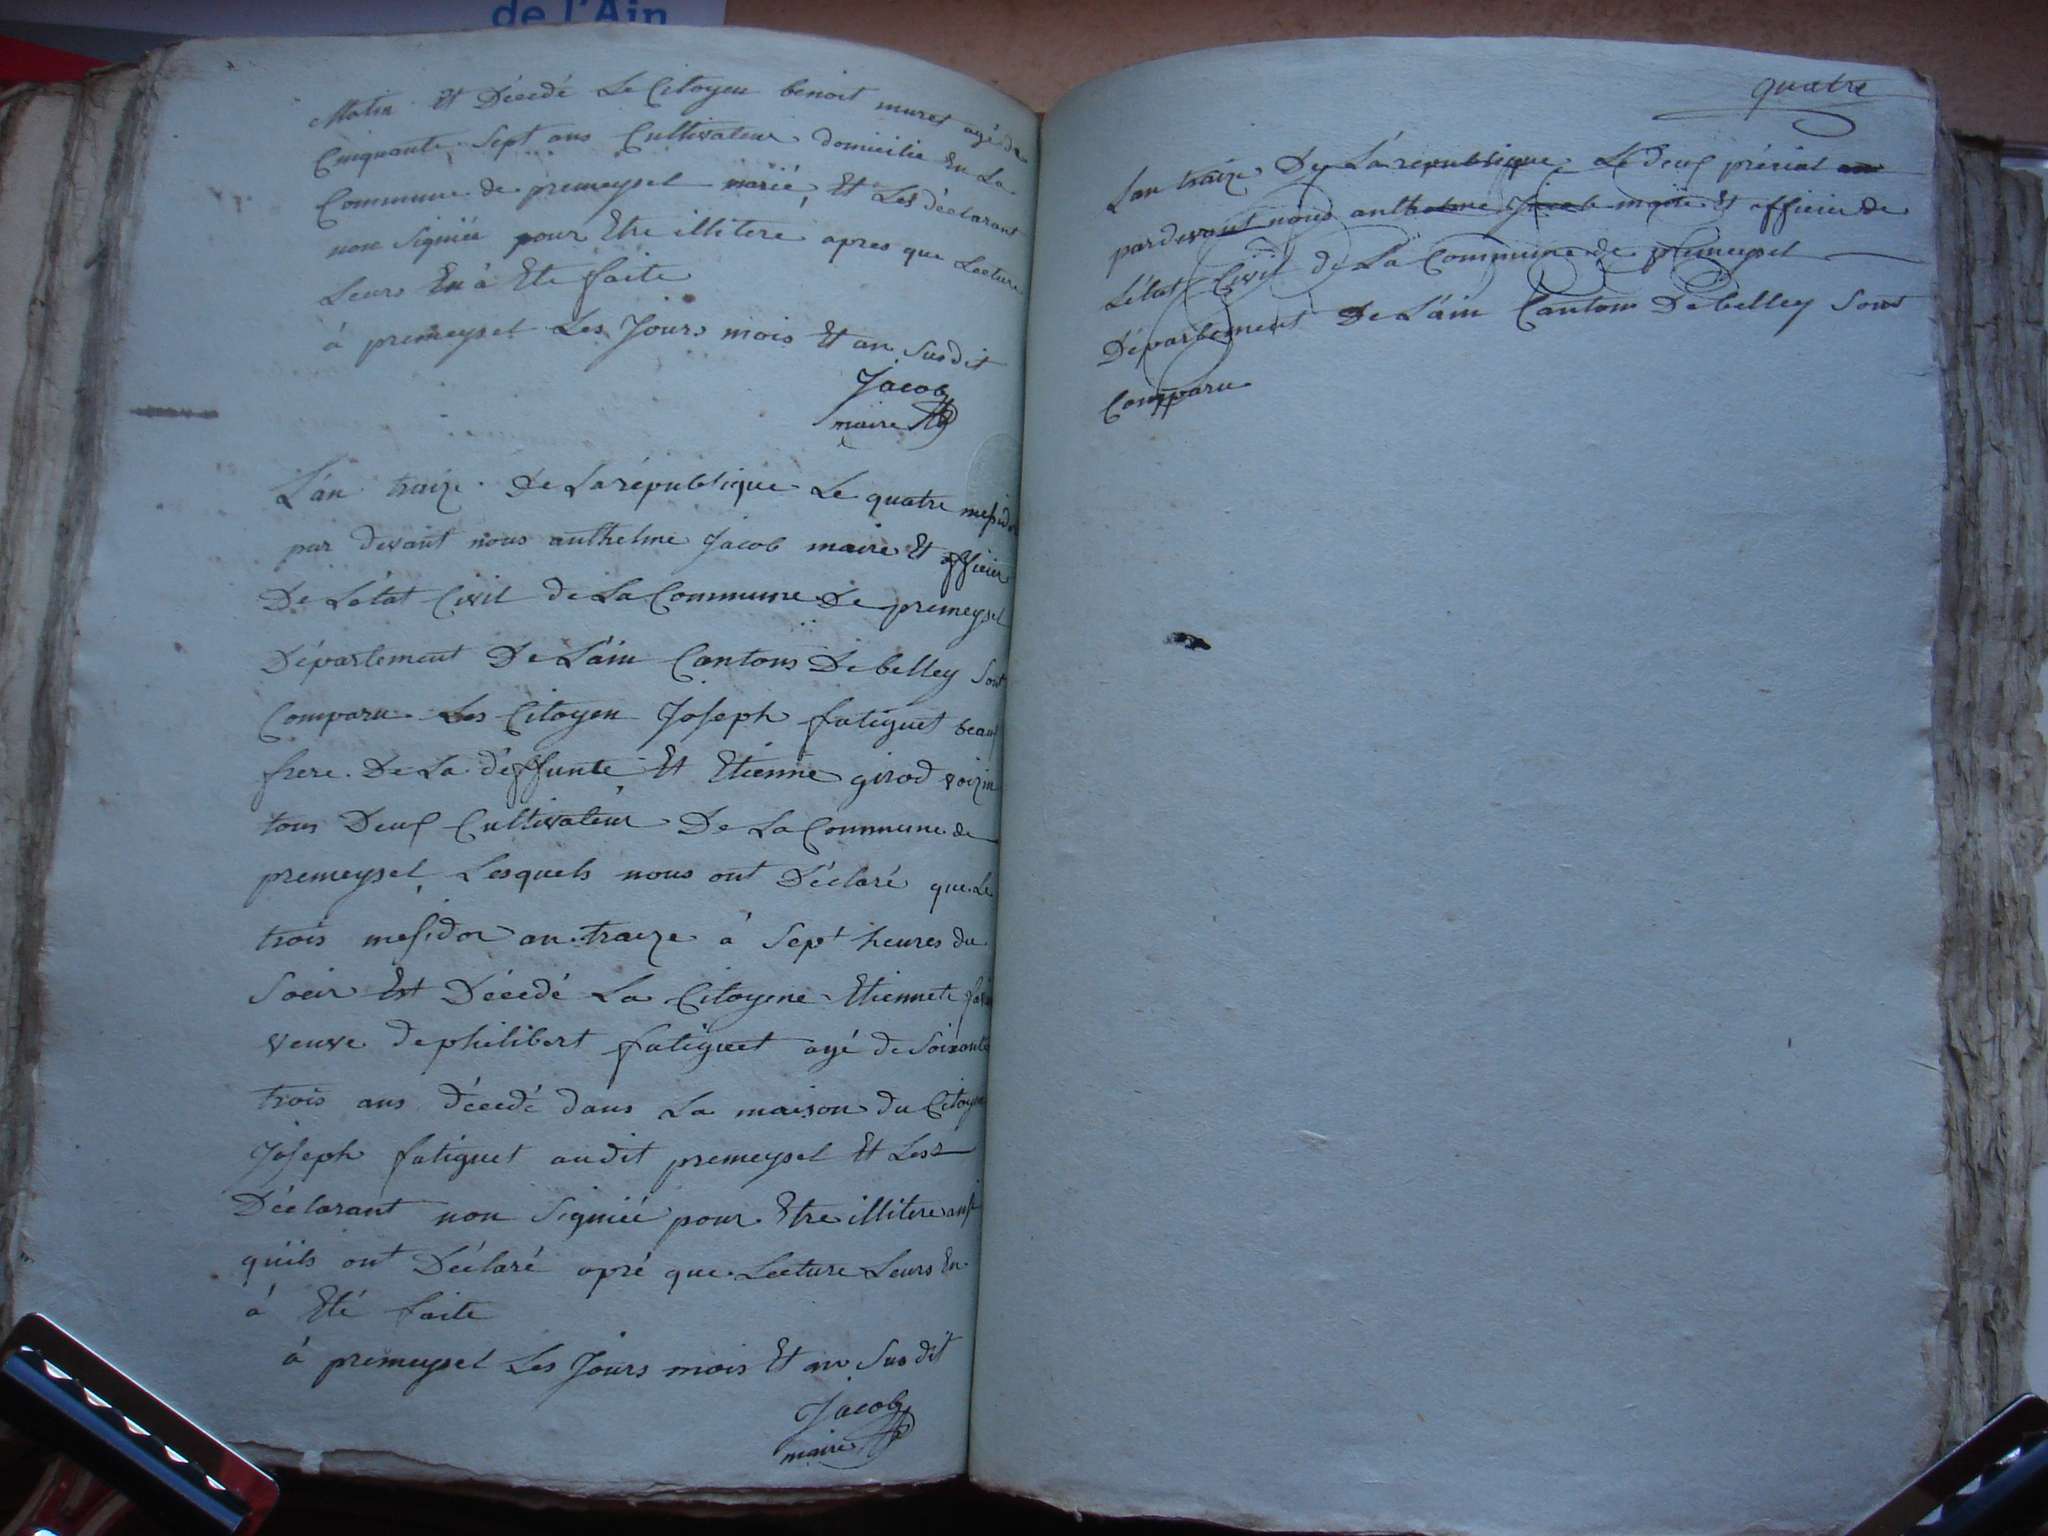 de l'Ain
Matin Et Décedé Le Citoyen benoit muret agé de
Cinquante Sept ans Cultivateur domicilie En La
Commune de premeysel marié Et Les déclarant
non Signiée pour Etre illitere apres que Lecture
Leurs En à Ete faite
à premeysel Les Jours mois Et an Susdit
Jacob
maire
L'an traize De La république Le quatre mesidor
par devant nous anthelme Jacob maire Et officier
De Létat Civil de La Commune De premeysel
Département De L'ain Cantons De belley Sont
Comparu Les Citoyen Joseph fatiguet beau
frere De La deffunte Et Etienne girod voizin
tous Deux Cultivateur De La Commune de
premeysel Lesquels nous ont Déclaré que Le
trois mesidor an traize à Sept heures du
Soeir Est Décedé La Citoyene Etiennete
veuve de philibert fatiguet agé de Soixante
trois ans décedé dans La maison du Citoyen
Joseph fatiguet audit premeysel Et Les
Déclarant non Signiée pour Etre illitere ansi
quils ont Déclaré apré que Lecture Leurs En
à Eté faite
à premeysel Les Jours mois Et an Susdit
Jacob
maire
quatre
Lan traize De La republique Le deux prérial an
pardevant nous anthelme Jacob maire Et officier de
Létat Civil de La Commune de premeysel
Département De L'ain Cantons De belley Sont
Comparu